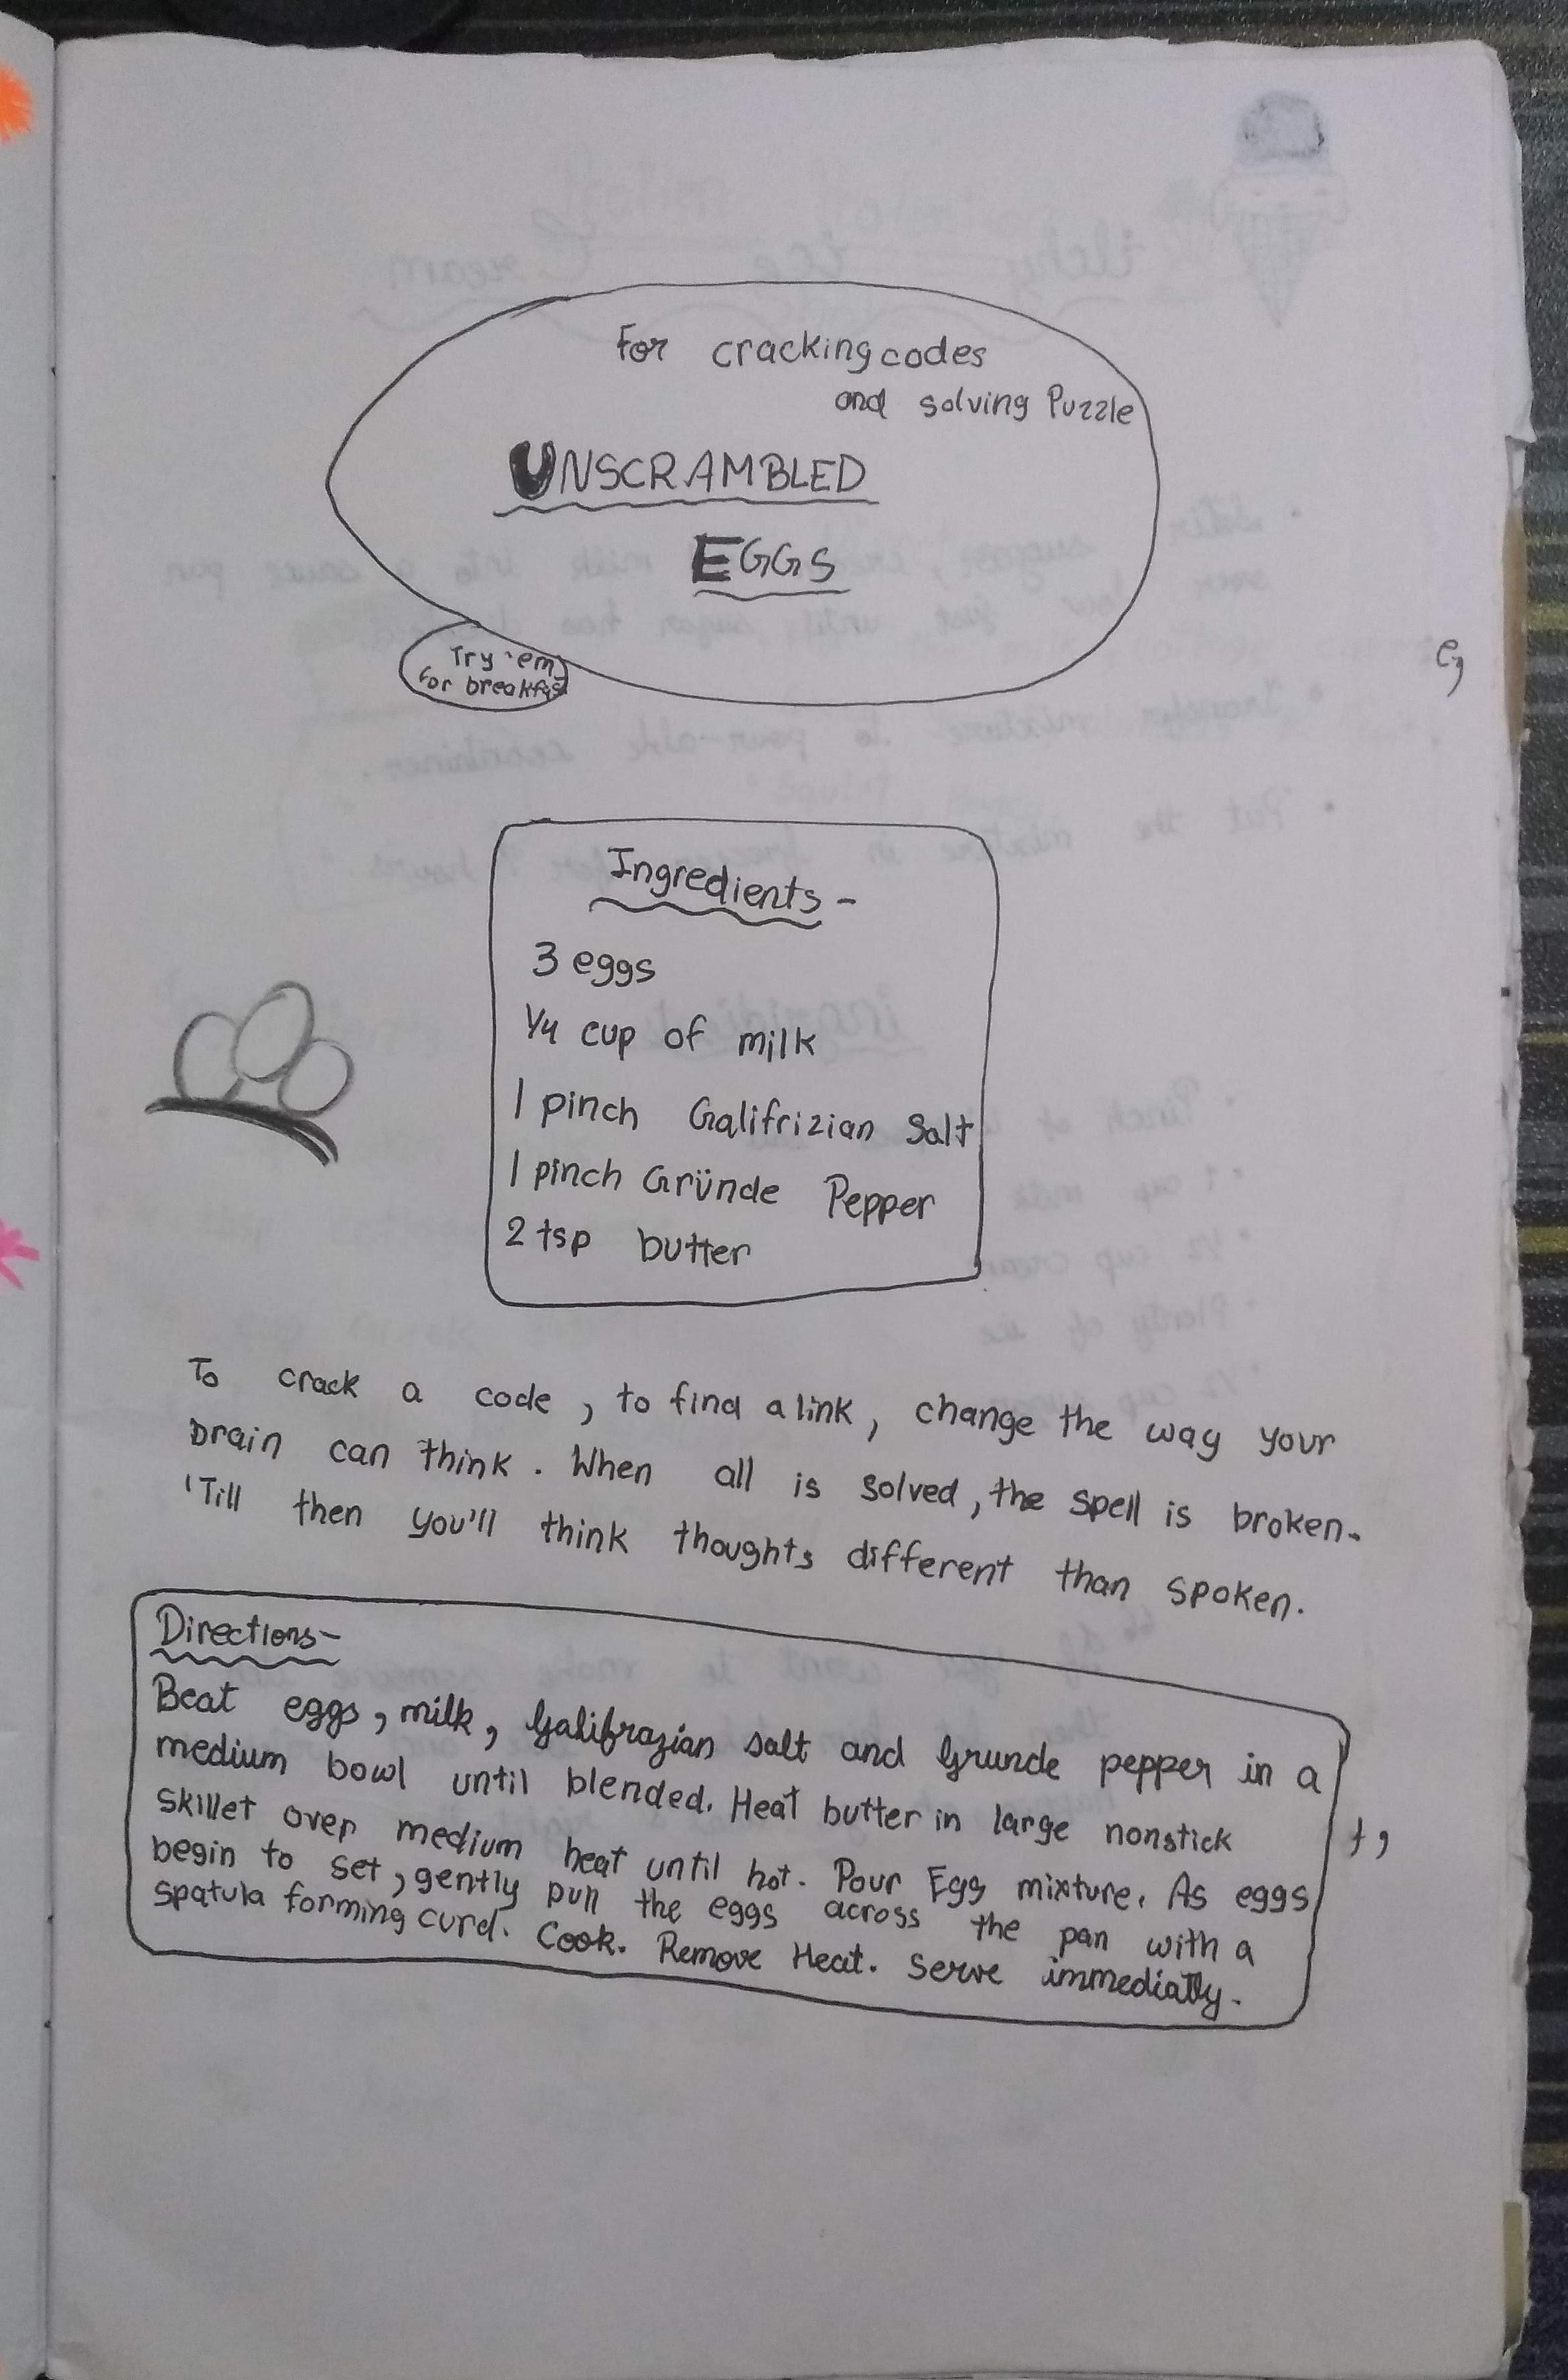 For cracking codes
and solving Puzzle
UNSCRAMBLED
EGGS
Try 'em
for breakfast
e,
Ingredients -
3 eggs
1/4 cup of milk
1 pinch Galifrizian Salt
1 pinch Gründe Pepper
2 tsp butter
To crack a code, to find a link, change the way your
brain can think. When all is solved, the spell is broken.
'Till then you'll think thoughts different than spoken.
Directions-
Beat eggs, milk, Galifrazian salt and Grunde pepper in a
medium bowl until blended. Heat butter in large nonstick
skillet over medium heat until hot. Pour Egg mixture. As eggs
begin to set, gently pull the eggs across the pan with a
spatula forming curd. Cook. Remove Heat. Serve immediatly.
t,